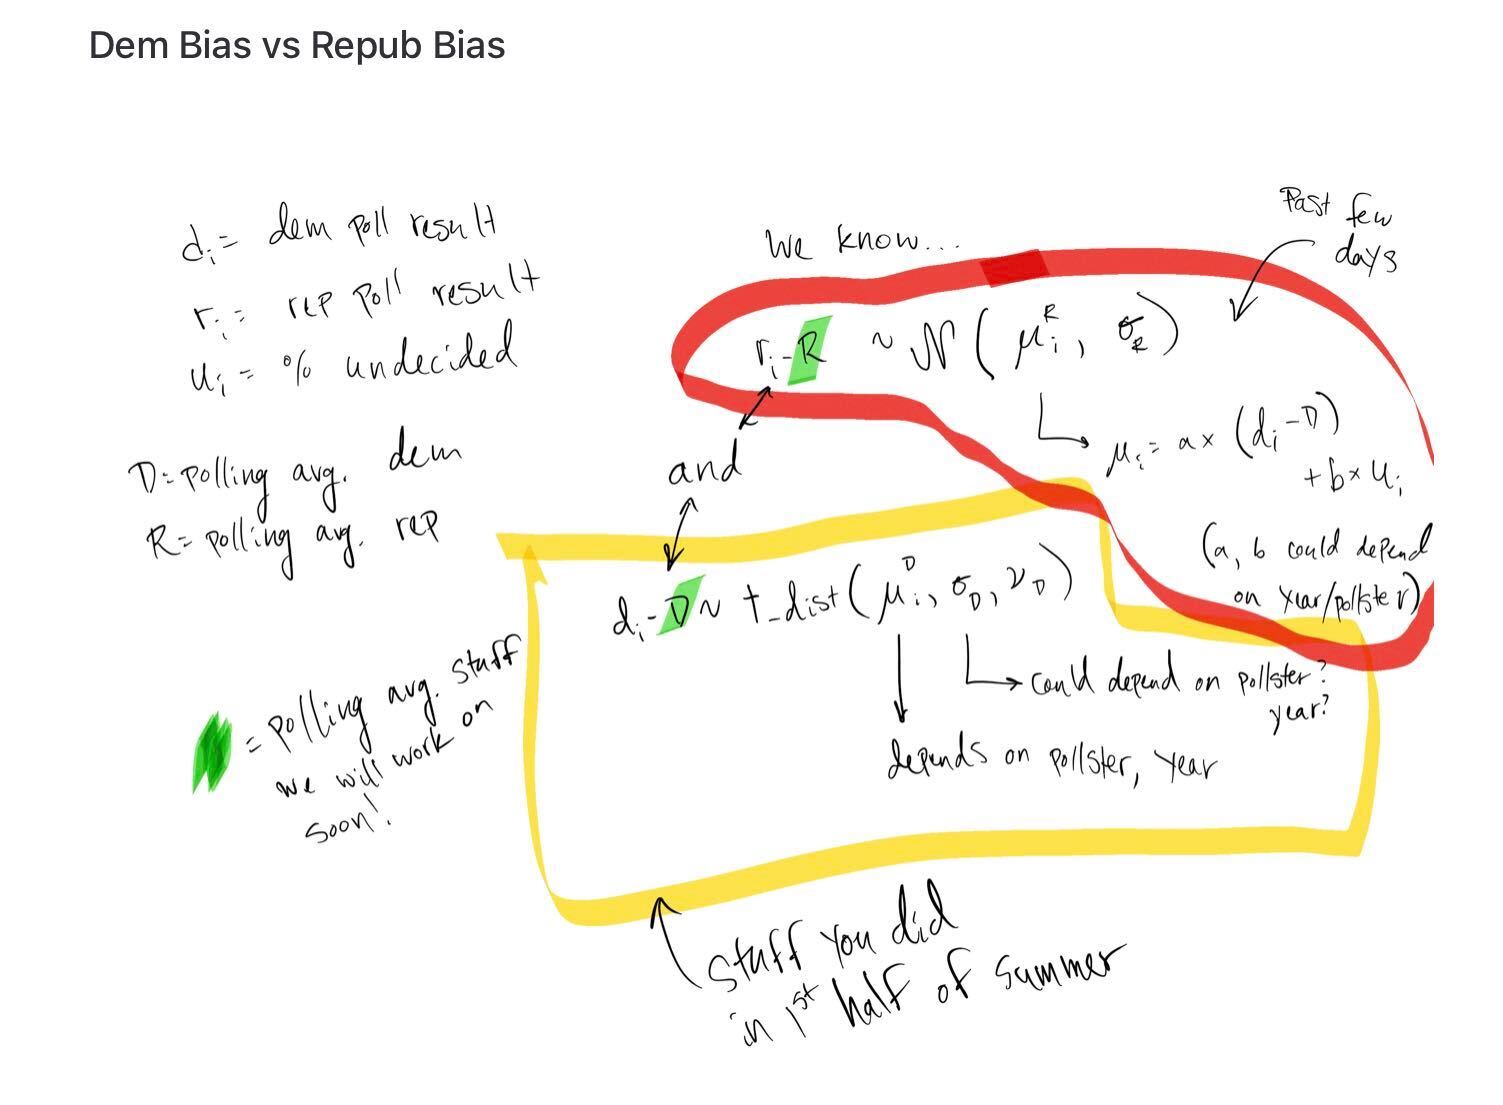 Dem Bias vs Repub Bias
dᵢ = dem poll result
rᵢ = rep poll result
uᵢ = % undecided
D = polling avg. dem
R = polling avg. rep
= polling avg. stuff
we will work on
soon!
We know...
Past few
days
rᵢ - R ~ N(μᵢᴿ, σ_R)
μᵢ = a × (dᵢ - D)
+ b × uᵢ
(a, b could depend
on year/pollster)
and
dᵢ - D ~ t_dist(μᵢᴰ, σ_D, ν_D)
could depend on pollster?
year?
depends on pollster, year
Stuff you did
in 1ˢᵗ half of summer